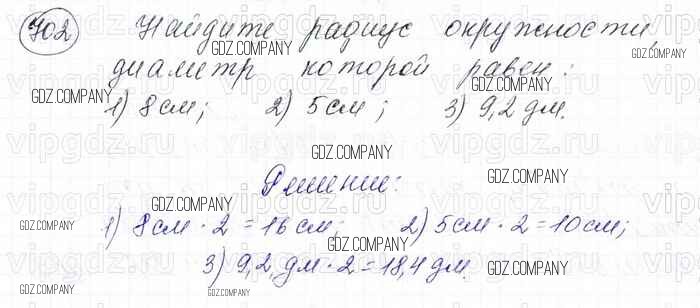 702 Найдите радиус окружности,
GDZ.COMPANY
GDZ.COMPANY
диаметр которой равен:
GDZ.COMPANY
GDZ.COMPANY
GDZ.COMPANY
1) 8 см; 2) 5 см; 3) 9,2 дм.
GDZ.COMPANY
Решение:
GDZ.COMPANY
1) 8 см · 2 = 16 см; 2) 5 см · 2 = 10 см;
GDZ.COMPANY
GDZ.COMPANY
3) 9,2 дм · 2 = 18,4 дм.
GDZ.COMPANY
GDZ.COMPANY
GDZ.COMPANY
vipgdz.ru